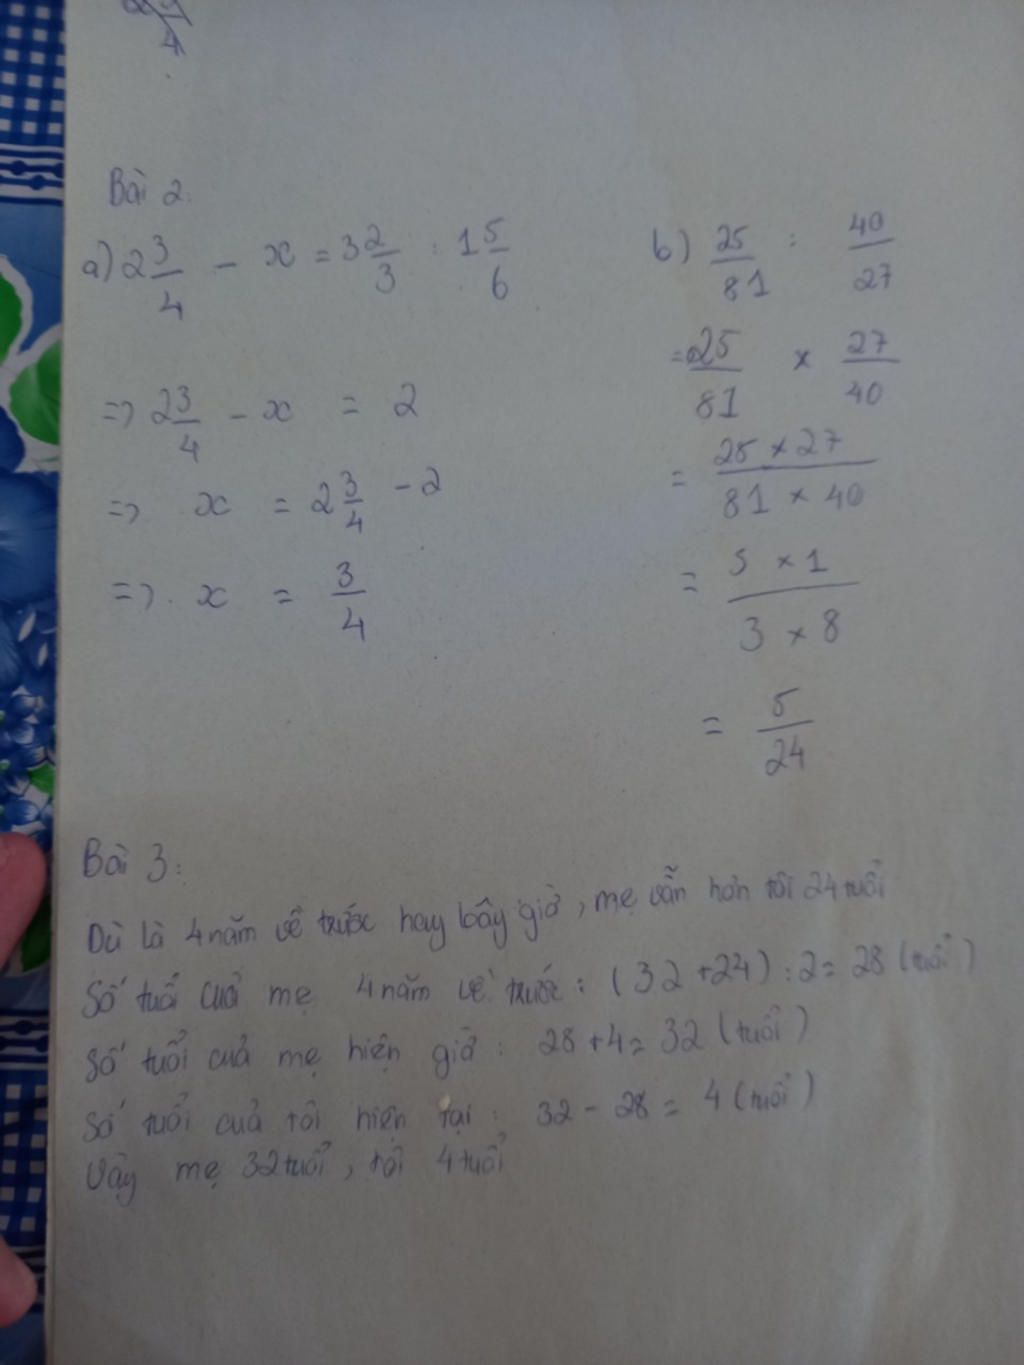 4
Bài 2.
a) 2 3/4 - x = 3 2/3 : 1 5/6
=> 2 3/4 - x = 2
=> x = 2 3/4 - 2
=> x = 3/4
b) 25/81 : 40/27
= 25/81 × 27/40
= 25 × 27 / 81 × 40
= 5 × 1 / 3 × 8
= 5/24
Bài 3:
Dù là 4 năm về trước hay bây giờ, mẹ vẫn hơn tôi 24 tuổi
Số tuổi của mẹ 4 năm về trước: (32 + 24) : 2 = 28 (tuổi)
Số tuổi của mẹ hiện giờ: 28 + 4 = 32 (tuổi)
Số tuổi của tôi hiện tại: 32 - 28 = 4 (tuổi)
Vậy mẹ 32 tuổi, tôi 4 tuổi